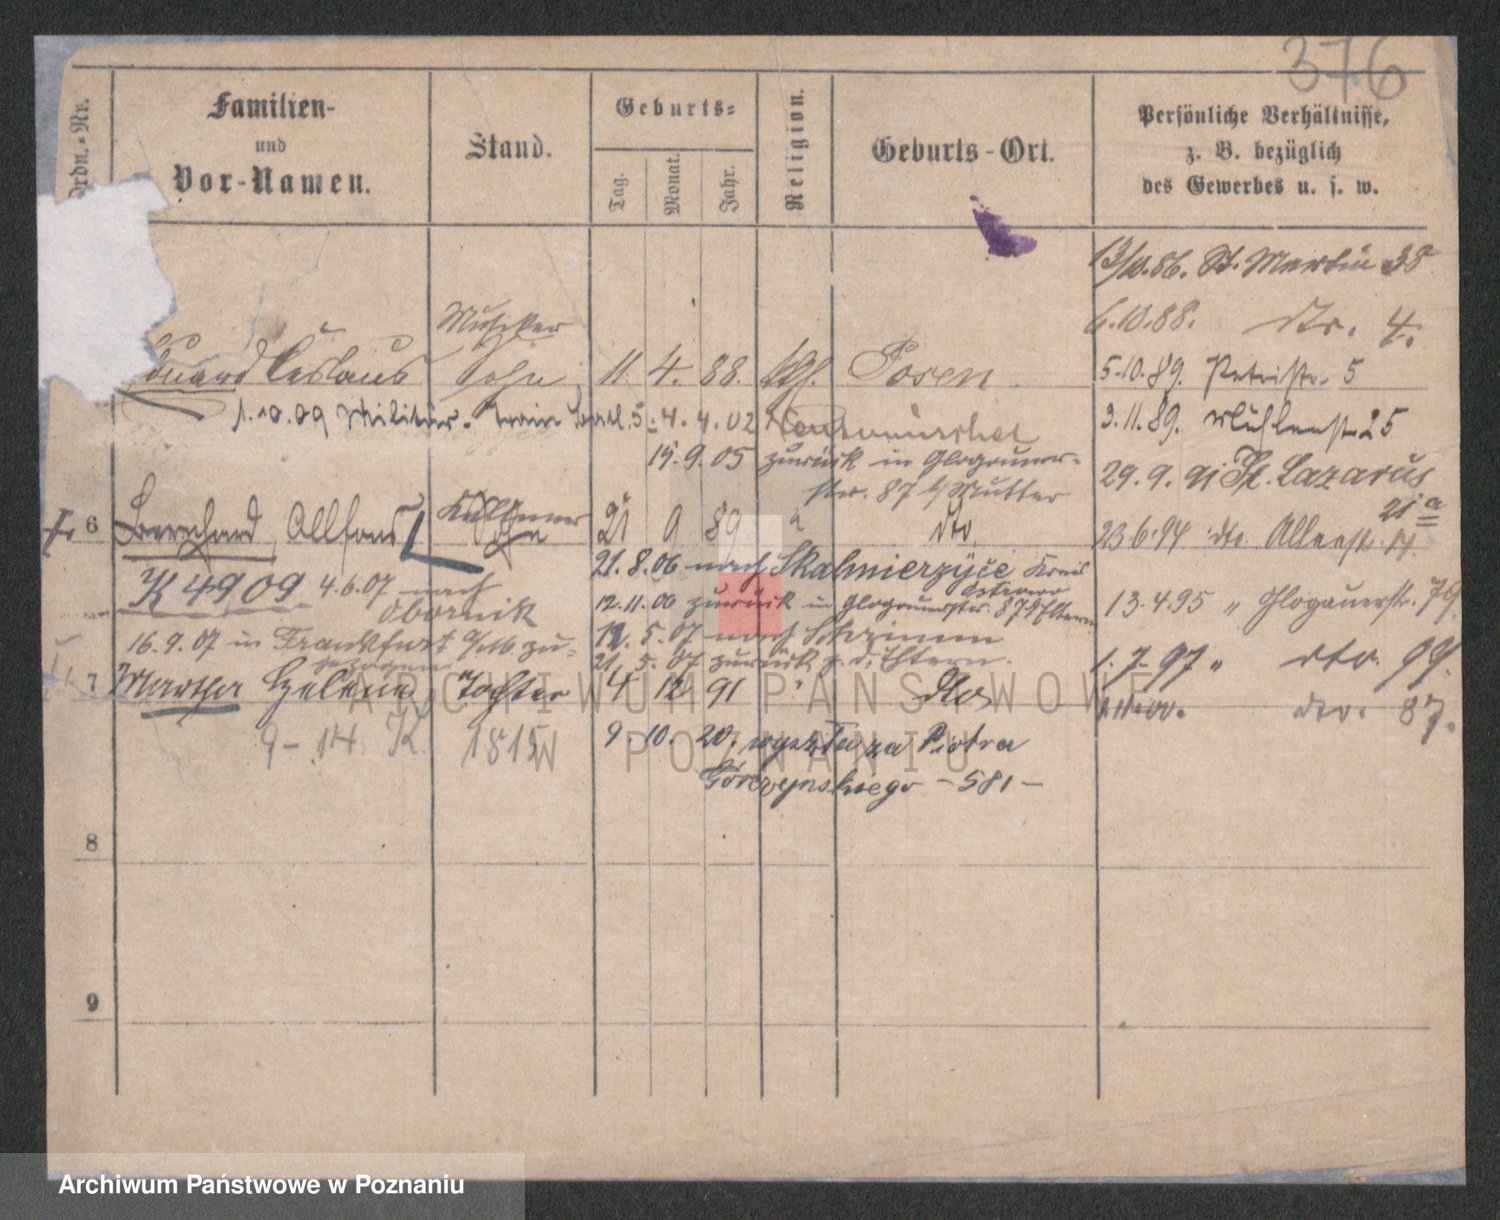 376
Ordn.-Nr.
Familien-
und
Vor-Namen.
Stand.
Geburts-
Tag.
Monat.
Jahr.
Religion.
Geburts-Ort.
Persönliche Verhältnisse,
z. B. bezüglich
des Gewerbes u. s. w.
13/10.86. St. Martin 38
6.10.88. dto. 4.
Musiker
Eduard Ceslaus Sohn 11. 4. 88. kth. Posen
5.10.89. Petristr. 5
1.10.09 Militär. Train Batl. 5
4. 4. 02
3.11.89. Mühlenstr. 25
15.9.05 zurück in Glogauer-
str. 87 b/Mutter
29.9.91 St. Lazarus
21 a
6 Bernhard Allfons Kellner Sohn 21 9 89 " dto.
23.6.94 dto. Allestr. 14.
21.8.06 nach Skalmierzyce Kreis
Ostrowo
K 4909 4.6.07 nach
Obornik
12.11.06 zurück in Glogauerstr. 87 Eltern
13.4.95 " Glogauerstr. 79.
16.9.07 in Frankfurt a/M zu-
gezogen
12. 5. 07 nach Schrimm
21. 5. 07 zurück z. d. Eltern.
1. 7. 97 " dto. 99.
7 Martha Helena Tochter 4 12 91 " dto.
dto. 87.
9-14. K. 1815
9. 10. 20. wyszła za Piotra
Górczyńskiego - 581 -
8
9
ARCHIWUM PAŃSTWOWE
W POZNANIU
Archiwum Państwowe w Poznaniu